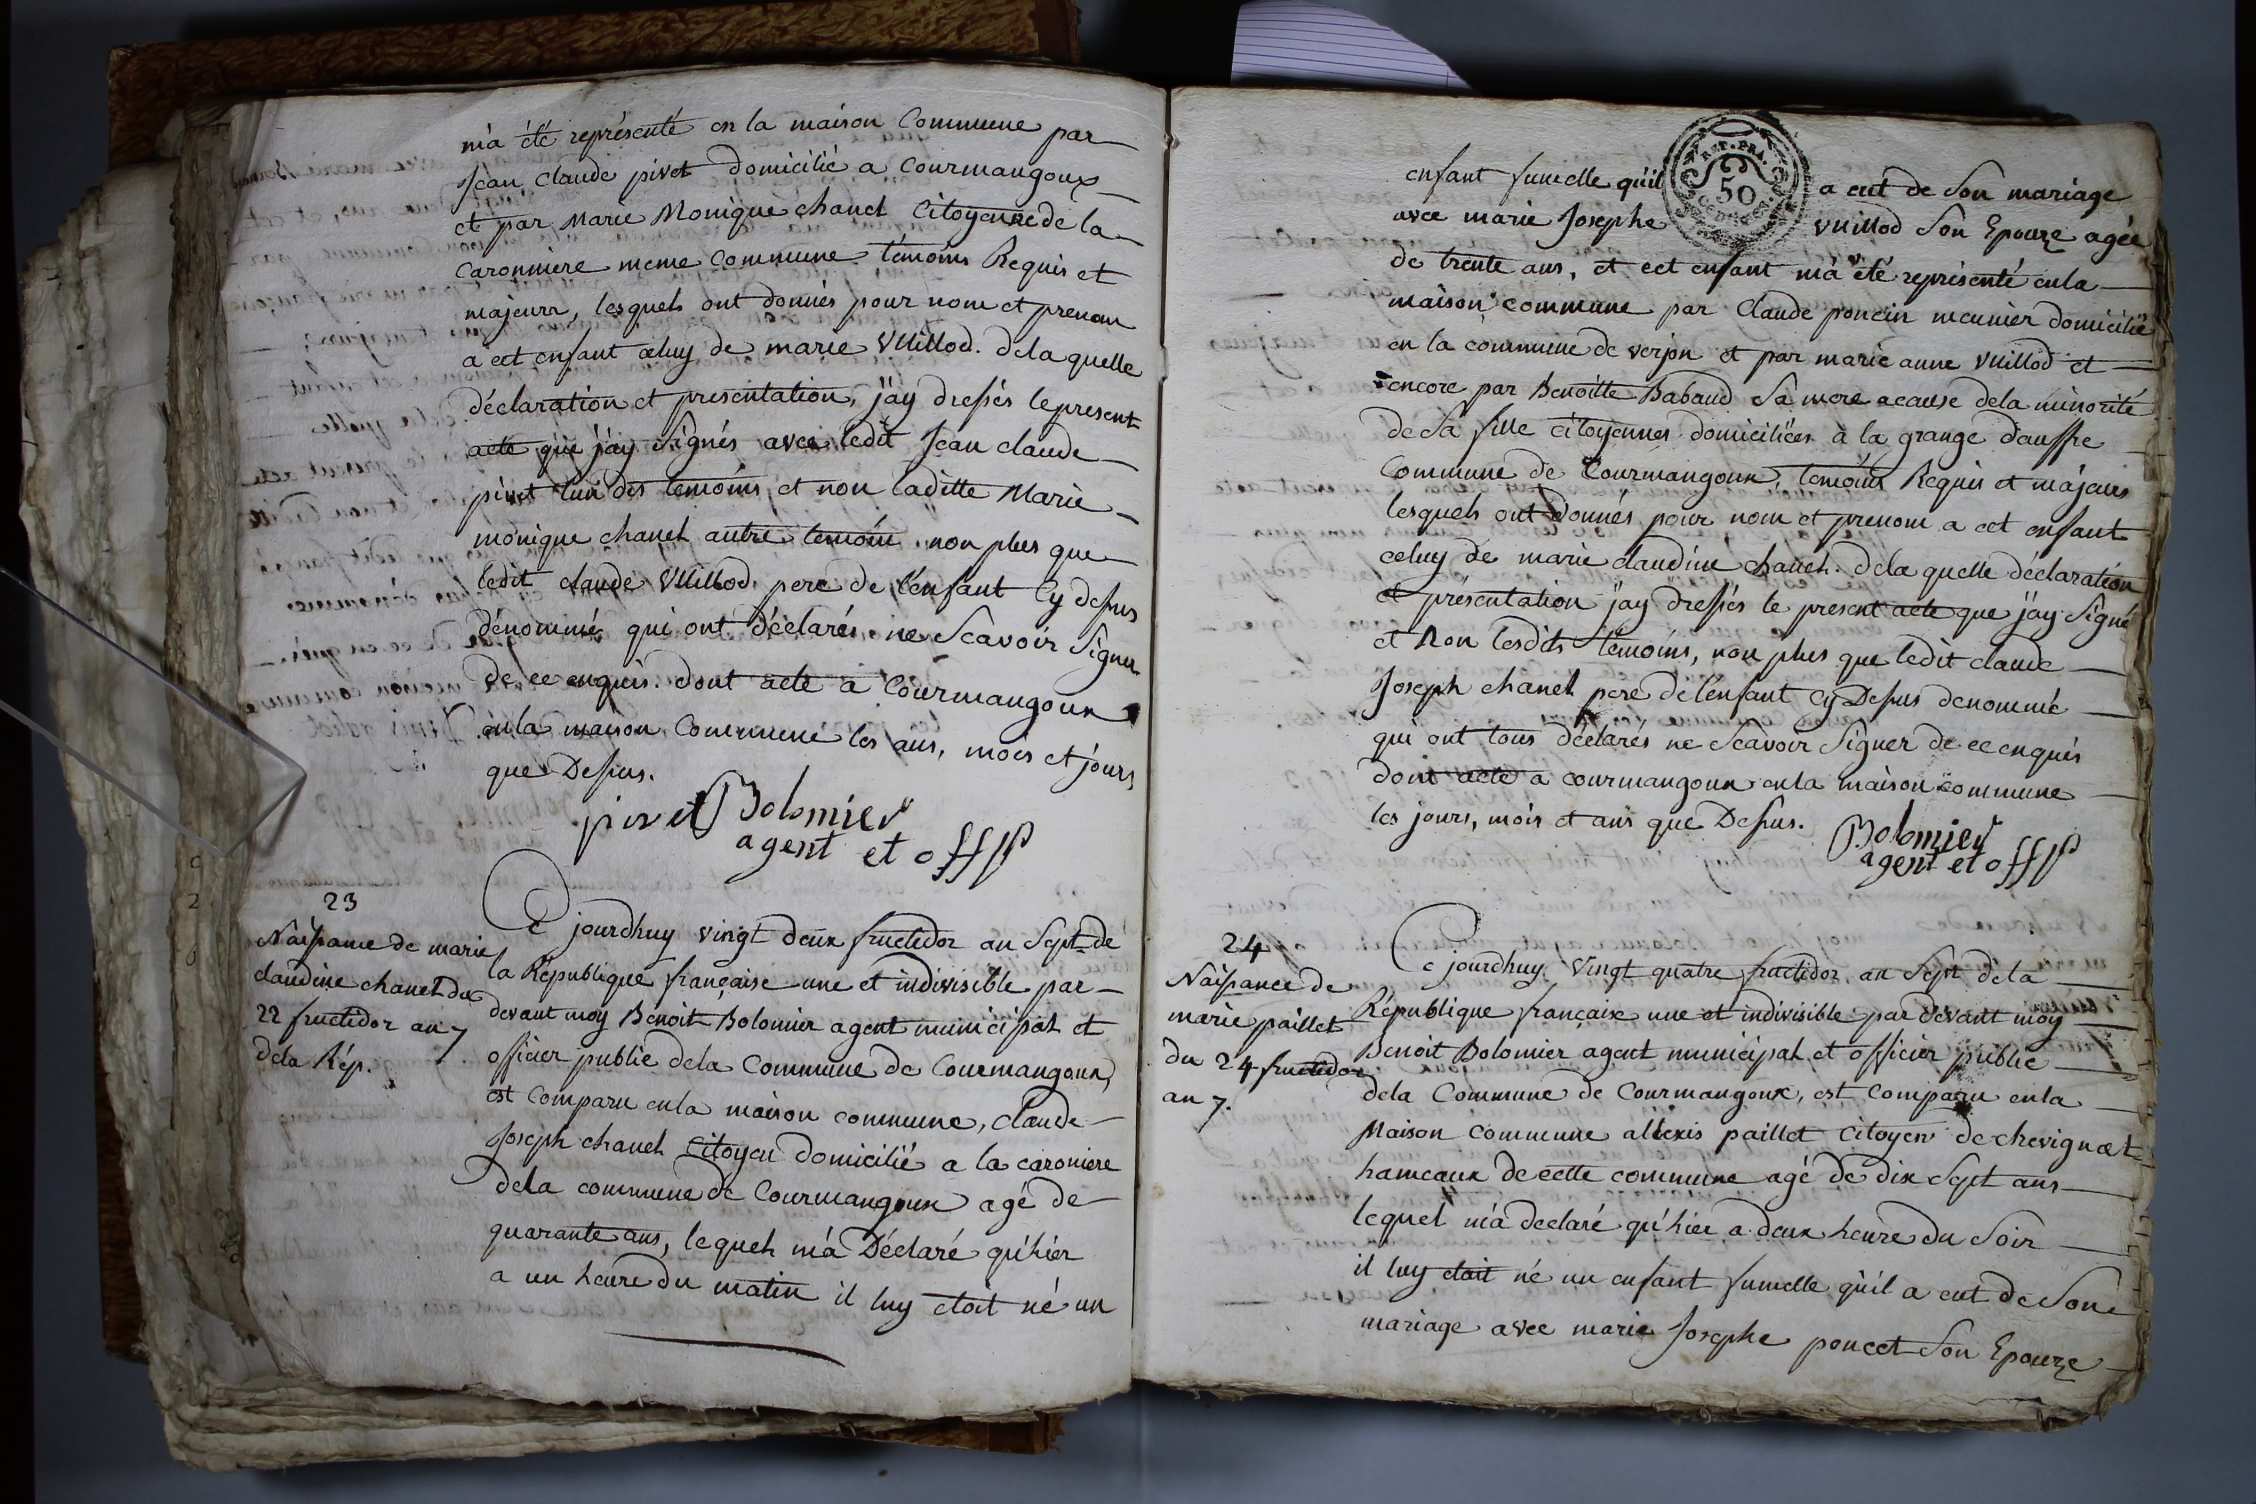 m'a été représenté en la maison Commune par
Jean claude pivet domicilié a courmangoux
et par Marie Monique chanel Citoyenne de la
Caronniere meme Commune témoins Requis et
majeurs, lesquels ont donnés pour nom et prenom
a cet enfant celuy de marie vuillod. de la quelle
déclaration et presentation, j'ay dressés le present
acte que j'ay signés avec ledit Jean claude
pivet l'un des temoins, et non laditte Marie
monique chanel autre temoin non plus que
ledit claude vuillod pere de l'enfant Cy dessus
dénommé qui ont déclarés ne Scavoir Signer
de ce enquis. dont acte a Courmangoux
en la maison Commune les ans, mois et jours
que Dessus.
pivet Bolomier
agent et off p
23
Naissance de marie
claudine chanel du
22 fructidor an 7
de la Rép.
Ce jourdhuy vingt deux fructidor an Sept de
la République française une et indivisible par
devant moy Benoit Bolomier agent municipal et
officier public de la Commune de Courmangoux,
est Comparu en la maison commune, claude
Joseph chanel Citoyen domicilié a la caroniere
de la commune de Courmangoux agé de
quarante ans, lequel m'a Déclaré qu'hier
a un heure du matin il luy etoit né un
RÉP. FRA.
50
enfant fumelle qu'il a eut de Son mariage
avec marie Josephe vuillod Son Epouze agée
de trente ans, et cet enfant m'a été représenté en la
maison commune par Claude poncin meunier domicilié
en la commune de verjon et par marie anne vuillod et
encore par Benoitte Babaud Sa mere a cause de la minorité
de Sa fille citoyennes domiciliées à la grange d'auffre
Commune de Courmangoux, temoins Requis et majeurs
lesquels ont donnés pour nom et prenom a cet enfant
celuy de marie claudine chanel. de la quelle déclaration
et présentation j'ay dressés le present acte que j'ay Signé
et Non lesdits témoins, non plus que ledit claude
Joseph chanel pere de l'enfant Cy Dessus denommé
qui ont tous déclarés ne Scavoir Signer de ce enquis
dont acte a courmangoux en la maison commune
les jours, mois et ans que Dessus.
Bolomier
agent et off p
24
Naissance de
marie paillet
du 24 fructidor
an 7.
Ce jourdhuy Vingt quatre fructidor an Sept de la
République française une et indivisible par devant moy
Benoit Bolomier agent municipal et officier public
de la Commune de Courmangoux, est Comparu en la
Maison Commune allexis paillet Citoyen de chevignat
hameaux de cette commune agé de dix Sept ans
lequel m'a declaré qu'hier a deux heure du Soir
il luy etoit né un enfant fumelle qu'il a eut de Son
mariage avec marie Josephe poncet Son Epouze